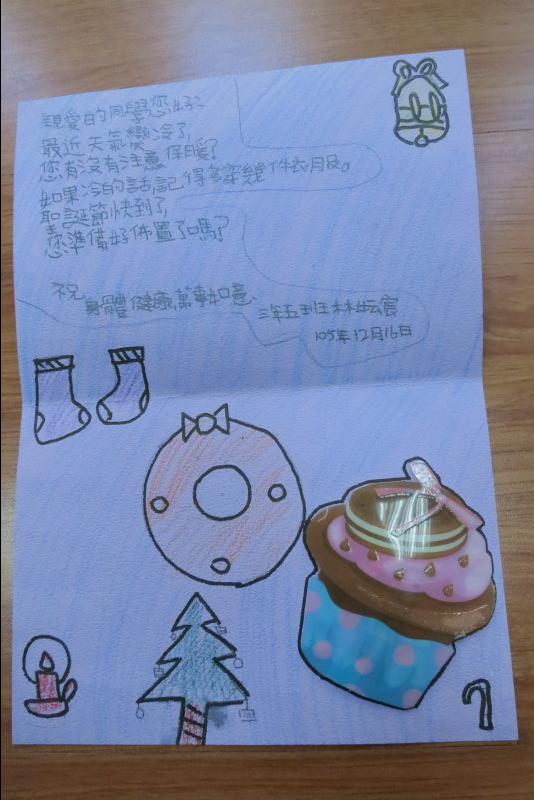 親愛的同學您好:
最近天氣變冷了,
您有沒有注意保暖?
如果冷的話,記得多穿幾件衣服。
聖誕節快到了,
您準備好佈置了嗎?
祝
身體健康,萬事如意
三年五班林妘宸
105年12月16日